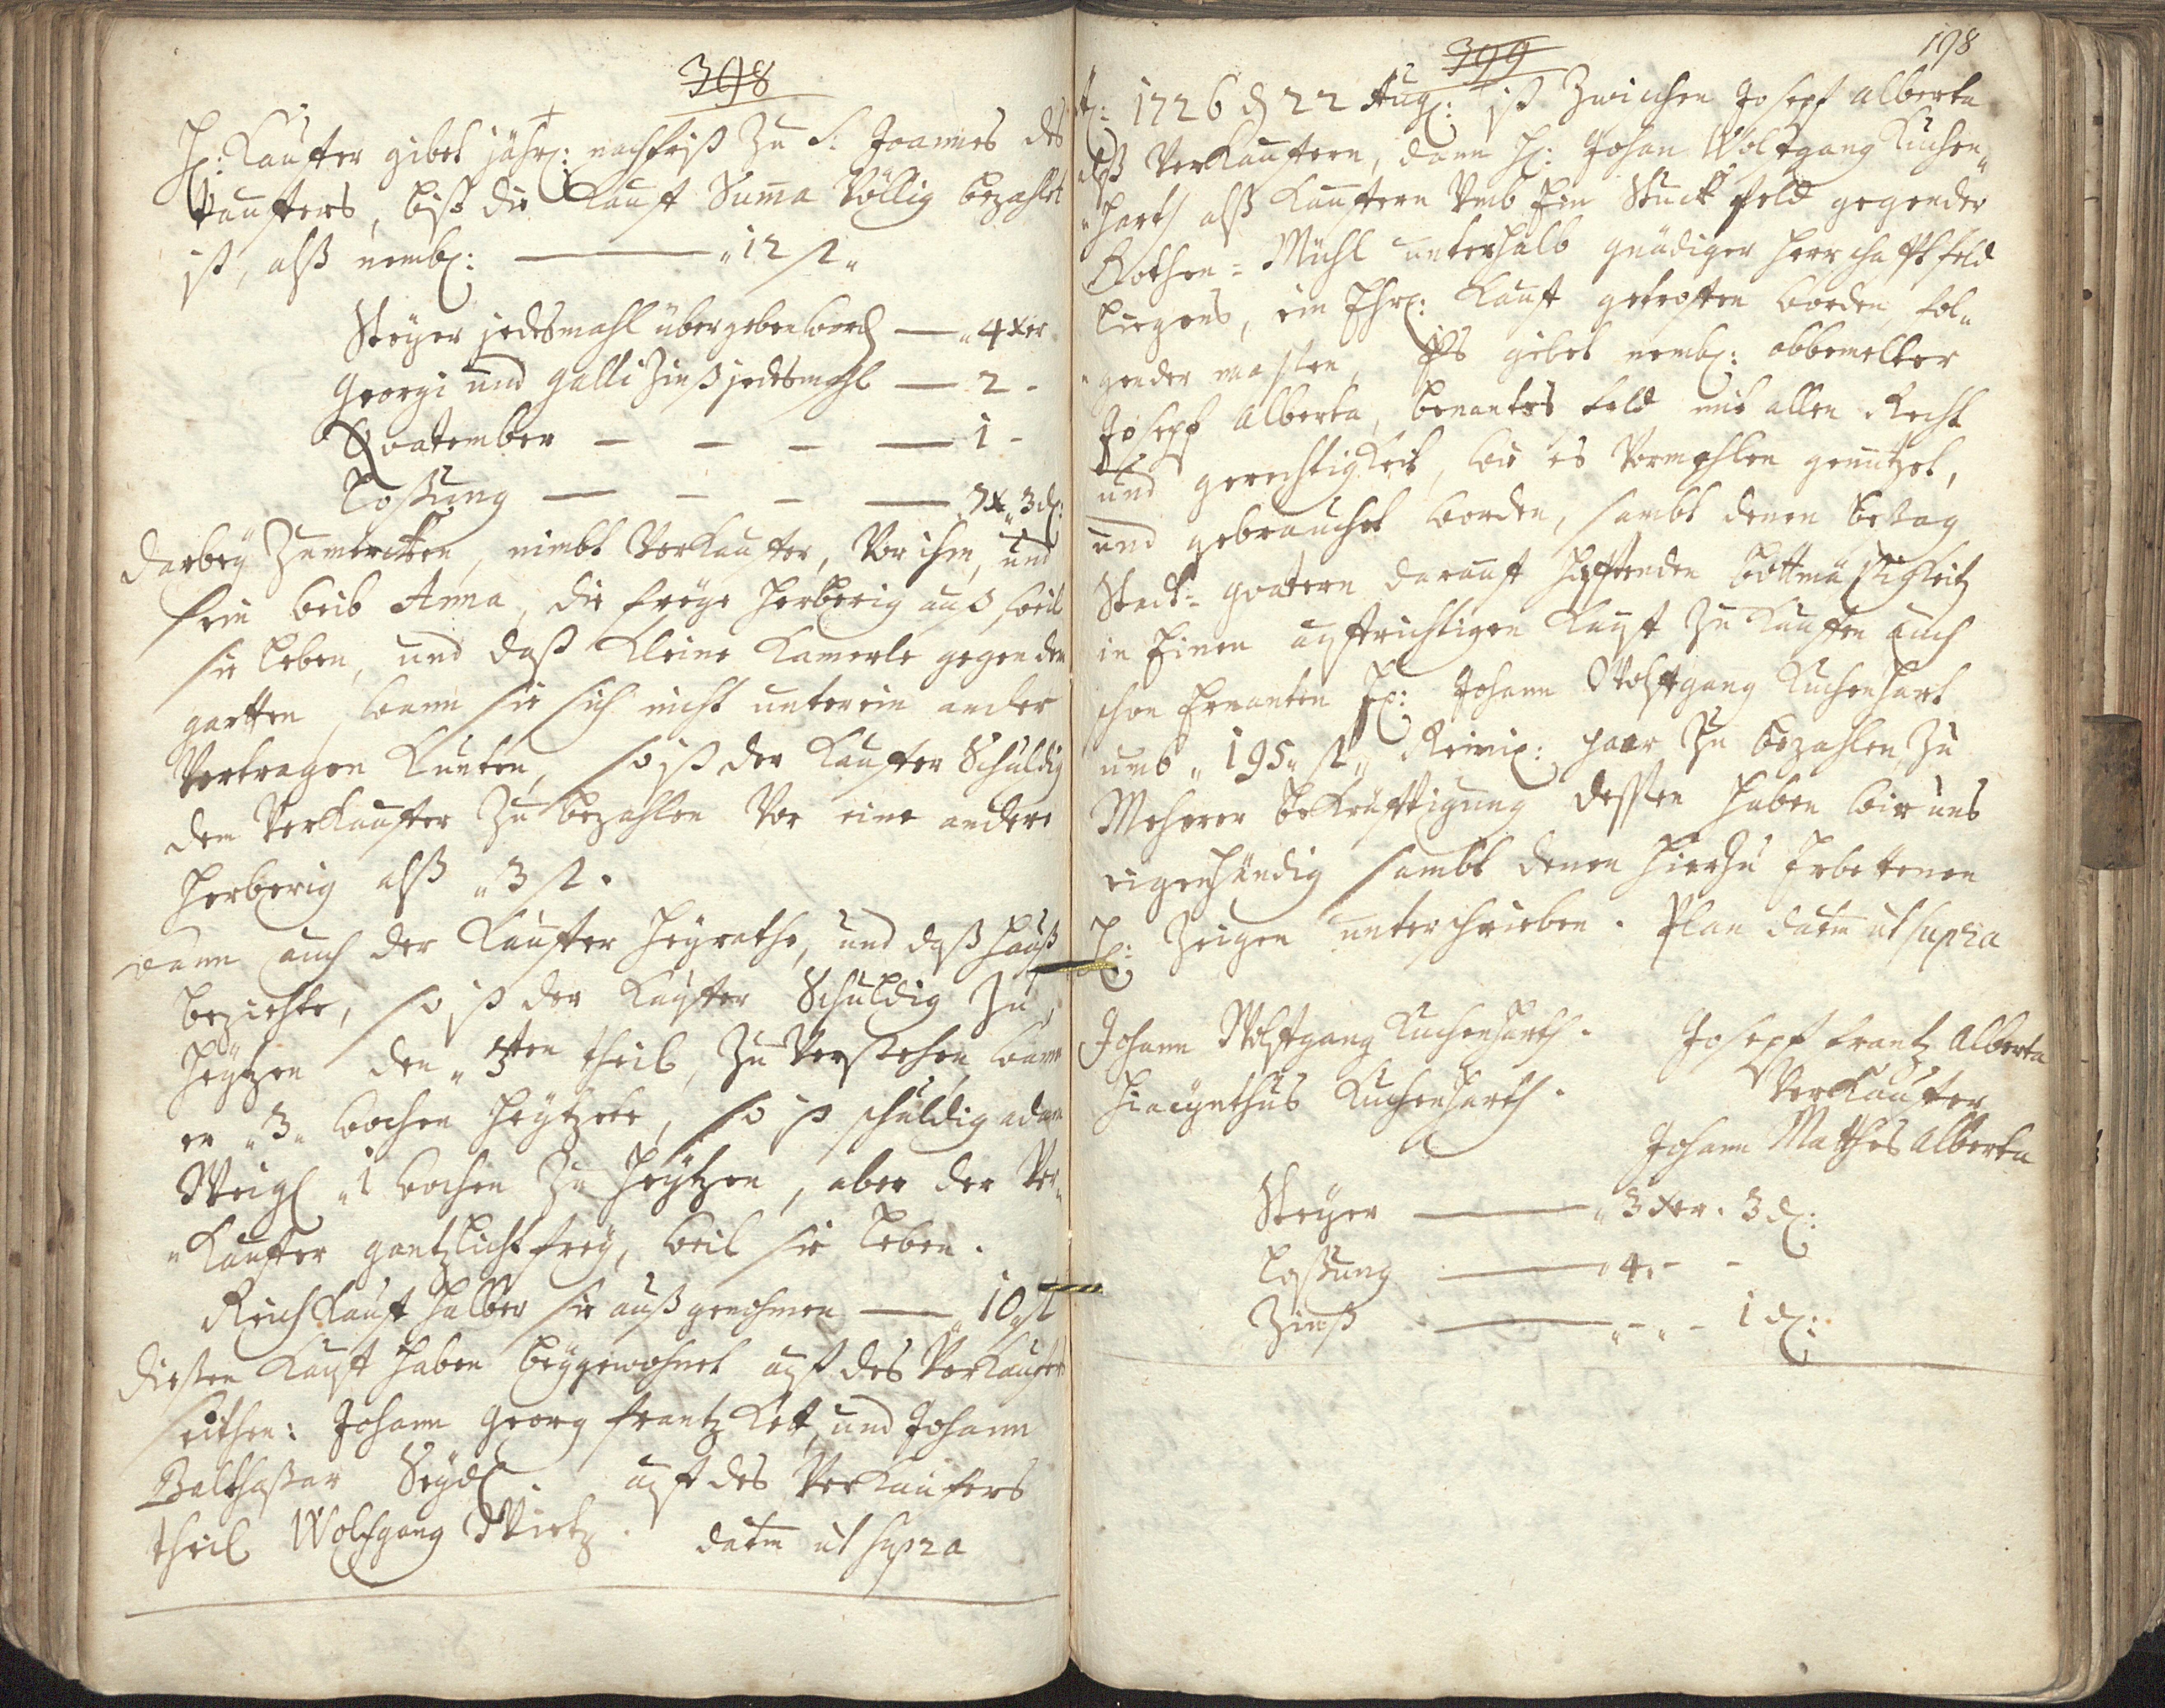 398
H: Kauffer gibet jährl: nachfrist Zu S: Joannes des
Tauffers, biß die Kauff Suma Völlig bezahlet
ist, alß nembl: — "12 fl"
Steyer jedesmahl übergeben word — "4 xer
Georgi und Galli Zinß jedesmahl — 2 -
Quatember — — — — 1 -
Loßung — — — — 7 x" 3 d:
Darbey Zumercken, nimbt Verkauffer, Vor ihm, und
sein Weib Anna, die freye Herberig auß weil
sie Leben, und daß Kleine Kamerle gegen den
gartten, wann sie sich nicht unterein ander
Vertragen Kunten, so ist der Kauffer Schuldig
dem Verkauffer Zu bezahlen Vor eine andere
Herberig alß "3 fl.
Wann auch der Kauffer Heyrathe, und daß Hauß
beziehte, so ist der Kauffer Schuldig Zu
Heytzen den "3ten theil, Zu Verstehen, wann
er "3" wochen Heytzete, so ist schuldig adam
Weigl "1 wochen Zu Heytzen, aber der Ver-
"Kauffer gäntzlicht frey, weil sie Leben.
Reich Kauff Halber sie außgenohmen — "10 fl
Diesen Kauff Haben beygewohnet auff des Verkauffers
seithen: Johann Georg Frantz Kett, und Johann
Balthasar Seydl. auff des Verkaufers
theil Wolfgang Wirtz. datm ut supra
399
198
A: 1726 d 22 Aug: ist Zwischen Joseph Alberta
alß Verkauffern, dann H: Johan Wolfgang Kuchen"
"harth alß Kauffern Vmb Ein Stuck feld gegen der
Rothen = Mühl unterhalb gnädiger Herrschafft feld
liegend, ein Ehrl: Kauff getroffen worden, fol"
"gender massen, Es gibet nembl: obbemelter
Joseph Alberta, benantes feld mit allen Recht
und gerechtigkeit, wie es Vormahlen genutzet,
und gebrauchet worden, sambt denen betag
Stadt= quatern darauff Hafftenden bottmäßigkeit
in Einen auffrichtigen Kauff Zu Kauffen auch
schon Ernanten H: Johann Wolffgang Kuchenhart
umb "195" fl" Reinis: paar Zu bezahlen, Zu
Mehrer bekräfftigung dessen Haben wir uns
eigenhändig sambt denen Hierzu Erbettenen
H: Zeigen unterschrieben. Plan datm ut supra
Johann Wolffgang Kuchenharth. Joseph Frantz Alberta
Hiacynthus Kuchenharth. Verkauffer
Johann Mathes Alberta
Steyer — "3 xer. 3 d:
Loßung — "4" - -
Zinß — "-"- 1 d: